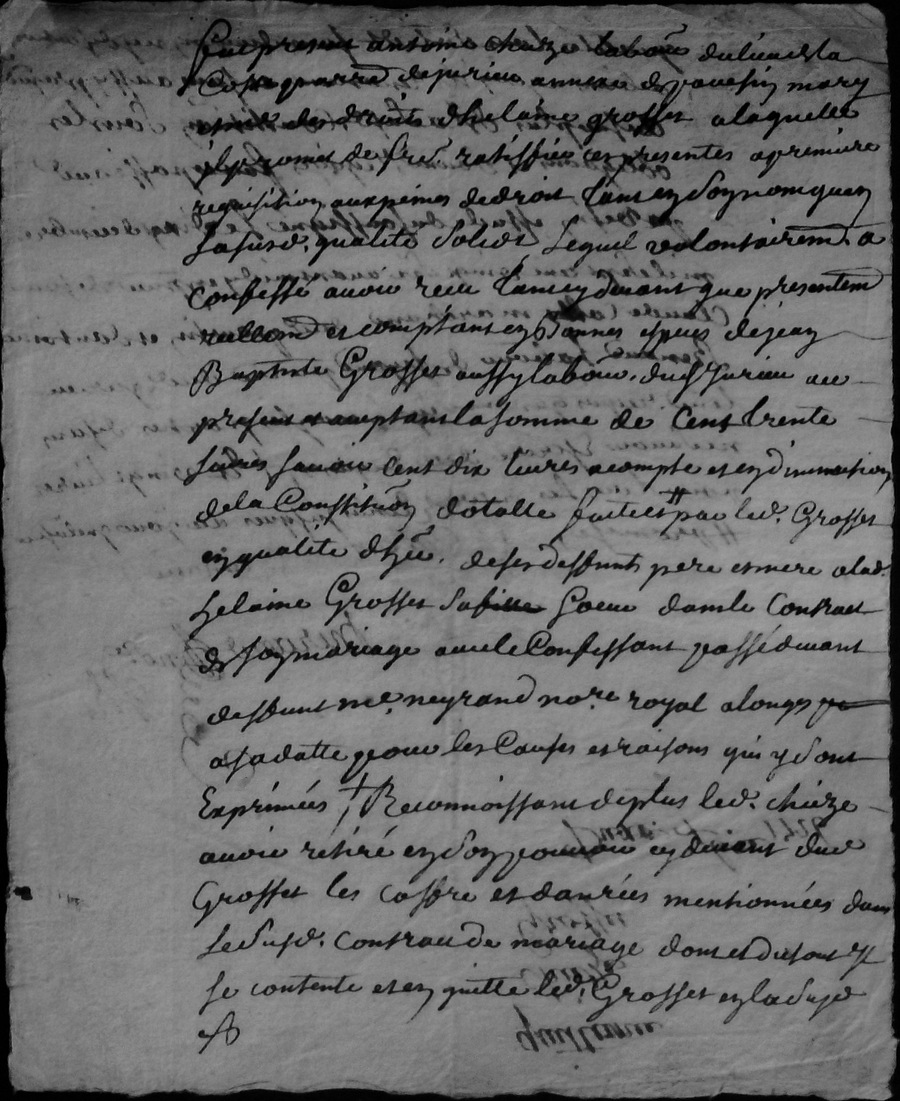 fut present antoine chieze labour. du lieu de la
Coste parroe. de jurieu annexe de pavesin mary
et me. des droits d'helaine grosset a laquelle
il promet de fre. ratiffier ces presentes a premiere
requisition aux peines de droit tant en son nom quen
sa susd. qualité solidt. Lequel volontairemt. a
Confessé avoir receu tant cy devant que presentemt
reellemt et comptant en bonnes espèces de jean
Baptiste Grosset aussy labour. dud. Jurieu au
present et acceptant la somme de Cent trente
livres savoir cent dix livres acompte et en diminution
de la Constituon dotalle faitte par led. Grosset
en qualité d'her. de ses deffunts pere et mere a lad.
helaine Grosset sa Soeur dans le Contract
de son mariage avec le Confessant passé devant
deffunt me. neyrand nore. royal a longs
a sa datte pour les Causes et raisons qui y sont
Exprimées † Reconnoissant de plus led. chieze
avoir retiré en son pouvoir cy devant dud
Grosset les coffre et danrées mentionnées dans
le susd. contract de mariage dont et du tout il
se contente et en quitte led. Grosset en la susd